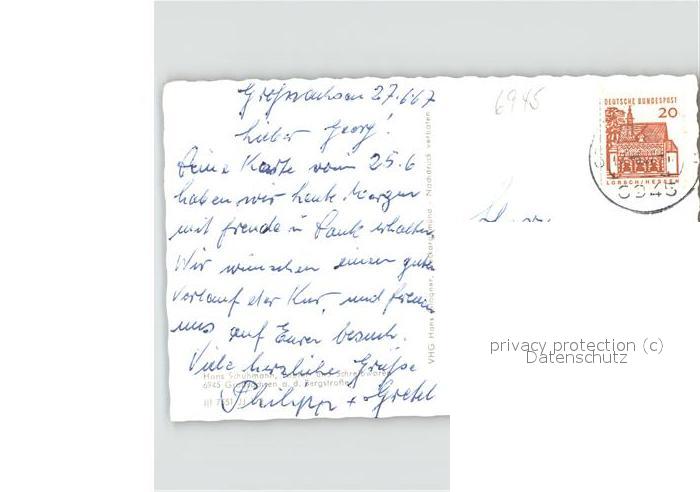 Großsachsen 27.6.67
Lieber Georg!
Deine Karte vom 25.6
haben wir heute Morgen
mit Freude u Dank erhalten
Wir wünschen einen guten
Verlauf der Kur, und freuen
uns auf Euren besuch.
Viele herzliche Grüße
Philipp + Gretel
Hans Schuhmann, Schreibwaren
6945 Großsachsen a. d. Bergstraße
VHG Hans Wagner, Neckargemünd - Nachdruck verboten
6945
DEUTSCHE BUNDESPOST
20
LORSCH/HESSEN
6945
privacy protection (c)
Datenschutz